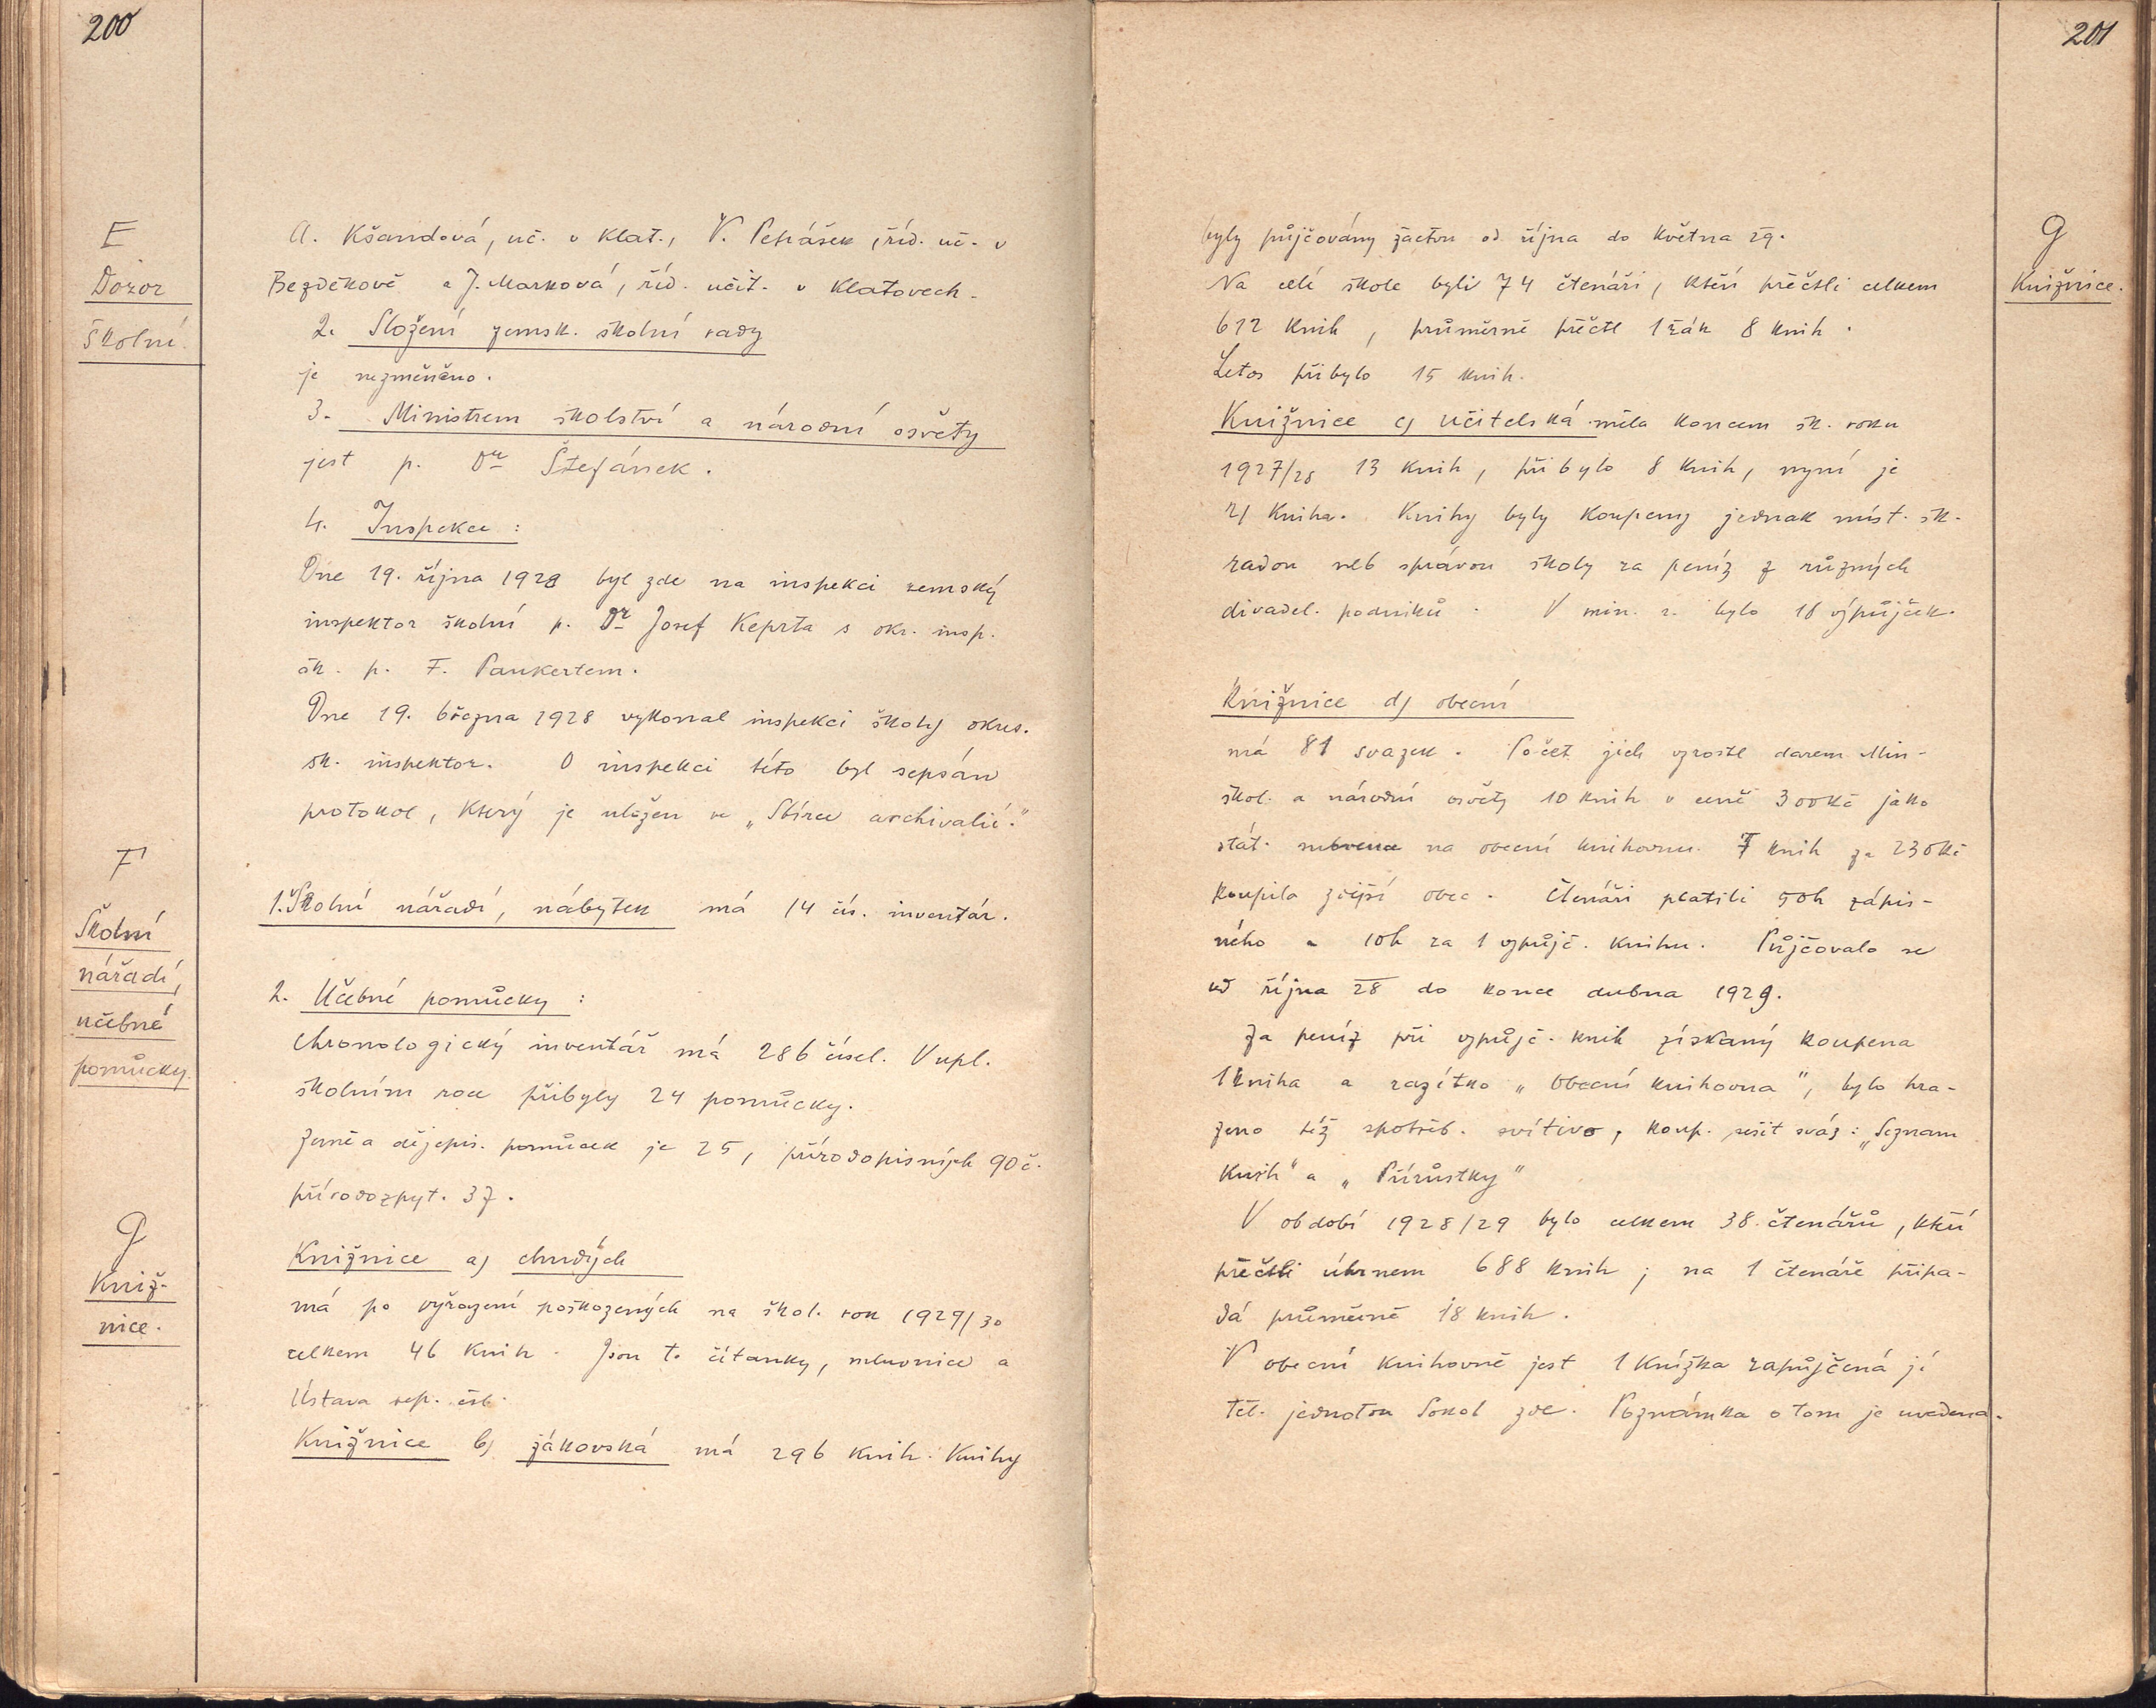 200
E
Dozor
školní.
A. Kšandová, uč. v Klat., V. Petrášek, říd. uč. v
Bezděkově a J. Marková, říd. učit. v Klatovech.
2. Složení zemsk. školní rady
je nezměněno.
3. Ministrem školství a národní osvěty
jest p. Dr Štefánek.
4. Inspekce:
Dne 19. října 1928 byl zde na inspekci zemský
inspektor školní p. Dr Josef Keprta s okr. insp.
šk. p. F. Pankertem.
Dne 19. března 1928 vykonal inspekci školy okres.
šk. inspektor. O inspekci této byl sepsán
protokol, který je uložen ve „Sbírce archivalií."
F
Školní
nářadí,
učebné
pomůcky.
1. Školní nářadí, nábytek má 14 čís. inventár.
2. Učebné pomůcky:
Chronologický inventář má 286 čísel. V upl.
školním roce přibyly 24 pomůcky.
Země a dějepis. pomůcek je 25, přírodopisných 90 č.
přírodozpyt. 37.
G
Kniž-
nice.
Knižnice a) chudých
má po vyřazení poškozených na škol. rok 1929/30
celkem 46 knih. Jsou to čítanky, mluvnice a
Ústava rep. čsl.
Knižnice b) žákovská má 296 knih. Knihy
201
G
Knižnice.
byly půjčovány žactvu od října do května 29.
Na celé škole byli 74 čtenáři, kteří přečtli celkem
612 knih, průměrně přečtl 1 žák 8 knih.
Letos přibylo 15 knih.
Knižnice c) učitelská měla koncem šk. roku
1927/28 13 knih, přibylo 8 knih, nyní je
21 kniha. Knihy byly koupeny jednak míst. šk.
radou neb správou školy za peníz z různých
divadel. podniků. V min. r. bylo 16 výpůjček.
Knižnice d) obecní
má 81 svazek. Počet jich vzrostl darem Min.
škol. a národní osvěty 10 knih v ceně 300 Kč jako
stát. subvence na obecní knihovnu. 7 knih za 230 Kč
koupila zdejší obec. Čtenáři platili 50h zápis-
ného a 10h za 1 vypůjč. knihu. Půjčovalo se
od října 28 do konce dubna 1929.
Za peníz při vypůjč. knih získaný koupena
1 kniha a razítko „Obecní knihovna", bylo hra-
zeno též spotřeb. svítivo, koup. sešit sváz: „Seznam
knih" a „Přírůstky"
V období 1928/29 bylo celkem 38 čtenářů, kteří
přečtli úhrnem 688 knih; na 1 čtenáře připa-
dá průměrně 18 knih.
V obecní knihovně jest 1 knížka zapůjčená jí
těl. jednotou Sokol zde. Poznámka o tom je uvedena.